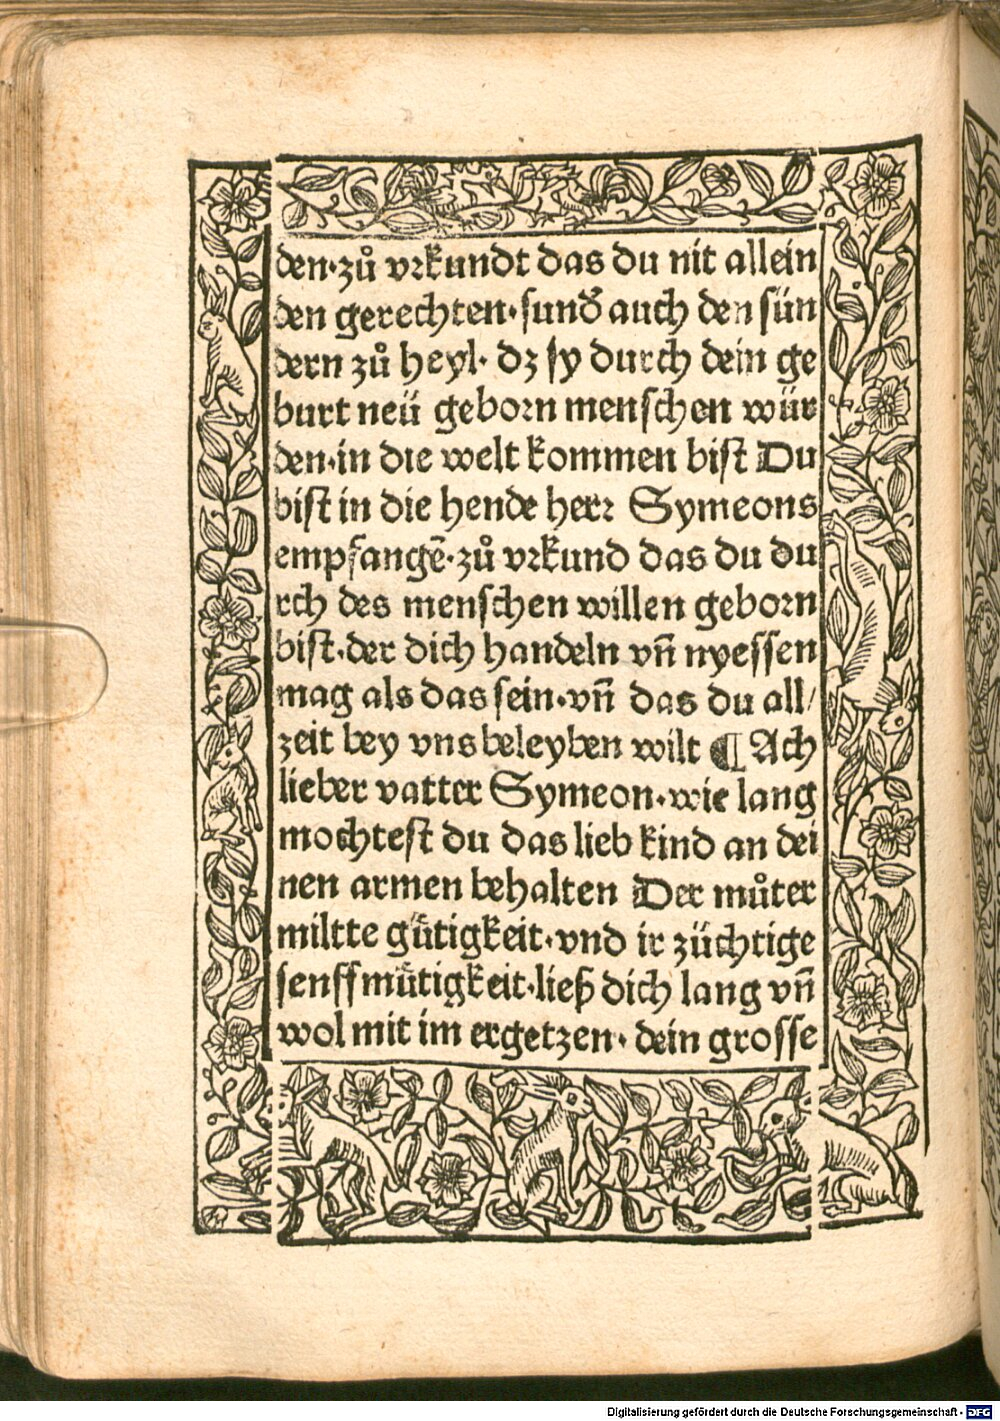 den·zů vrkundt das du nit allein
den gerechten·sunđ auch den sün
dern zů heyl· dz sy durch dein ge
burt neü geborn menschen wür
den·in die welt kommen bist Du
bist in die hende herr Symeons
empfangē·zů vrkund das du du
rch des menschen willen geborn
bist·der dich handeln vñ nyessen
mag als das sein·vñ das du all/
zeit bey vns beleyben wilt ¶ Ach
lieber vatter Symeon·wie lang
mochtest du das lieb kind an dei
nen armen behalten Der můter
miltte gütigkeit·vnd ir züchtige
senffmütigkeit·ließ dich lang vñ
wol mit im ergetzen· dein grosse
Digitalisierung gefördert durch die Deutsche Forschungsgemeinschaft - DFG